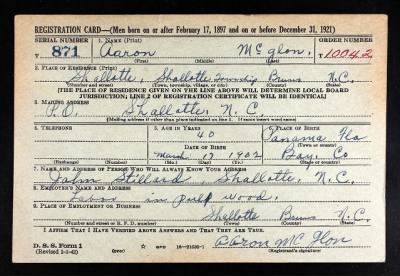 REGISTRATION CARD—(Men born on or after February 17, 1897 and on or before December 31, 1921)
SERIAL NUMBER 1. NAME (Print) ORDER NUMBER
871 Aaron McGlon. T10042
(First) (Middle) (Last)
2. PLACE OF RESIDENCE (Print)
Shallotte, Shallotte Township Bruns N.C.
(Number and street) (Town, township, village, or city) (County) (State)
[THE PLACE OF RESIDENCE GIVEN ON THE LINE ABOVE WILL DETERMINE LOCAL BOARD
JURISDICTION; LINE 2 OF REGISTRATION CERTIFICATE WILL BE IDENTICAL]
3. MAILING ADDRESS
P.O. Shallotte, N.C.
[Mailing address if other than place indicated on line 2. If same insert word same]
4. TELEPHONE 5. AGE IN YEARS 6. PLACE OF BIRTH
40 Panama Fla
DATE OF BIRTH (Town or county)
March 1902 Bay, Co
(Exchange) (Number) (Mo.) (Day) (Yr.) (State or country)
7. NAME AND ADDRESS OF PERSON WHO WILL ALWAYS KNOW YOUR ADDRESS
Stillard, Shallotte, N.C.
8. EMPLOYER'S NAME AND ADDRESS
Labor in pulp wood.
9. PLACE OF EMPLOYMENT OR BUSINESS
Shallotte Bruns N.C.
(Number and street or R. F. D. number) (Town) (County) (State)
I AFFIRM THAT I HAVE VERIFIED ABOVE ANSWERS AND THAT THEY ARE TRUE.
D. S. S. Form 1 Aaron McGlon
(Revised 1-1-42) (over) 16-21630-1 (Registrant's signature)